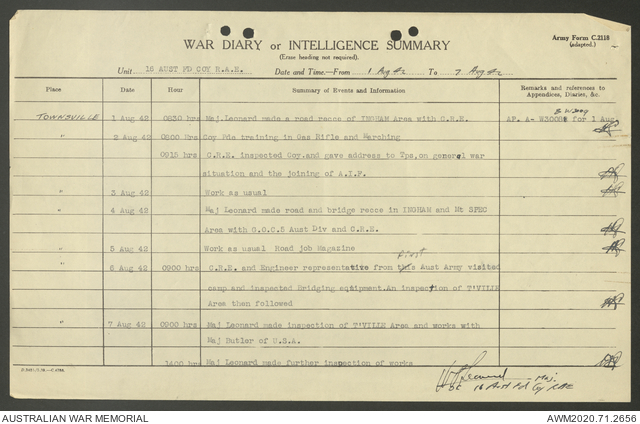 Army Form C.2118
(adapted.)
WAR DIARY or INTELLIGENCE SUMMARY
(Erase heading not required).
Unit 16 AUST FD COY R.A.E. Date and Time:—From 1 Aug 42 To 7 Aug 42
Place Date Hour Summary of Events and Information Remarks and references to Appendices, Diaries, &c.
TOWNSVILLE 1 Aug 42 0830 hrs Maj.Leonard made a road recce of INGHAM Area with C.R.E. AP. A- W3008 for 1 Aug
" 2 Aug 42 0800 Hrs Coy Pde training in Gas Rifle and Marching
0915 hrs C.R.E. inspected Coy.and gave address to Tps,on general war
situation and the joining of A.I.F.
" 3 Aug 42 Work as usual
" 4 Aug 42 Maj Leonard made road and bridge recce in INGHAM and Mt SPEC
Area with G.O.C.5 Aust Div and C.R.E.
" 5 Aug 42 Work as usual Road job Magazine
first
" 6 Aug 42 0900 hrs C.R.E. and Engineer representative from this Aust Army visited
camp and inspected Bridging eqtipment.An inspection of T'VILLE
Area then followed
" 7 Aug 42 0900 hrs Maj Leonard made inspection of T'VILLE Area and works with
Maj Butler of U.S.A.
1400 hrs Maj Leonard made further inspection of works
Leonard Maj.
OC 16 Aust Fd Coy RAE
AUSTRALIAN WAR MEMORIAL
AWM2020.71.2656